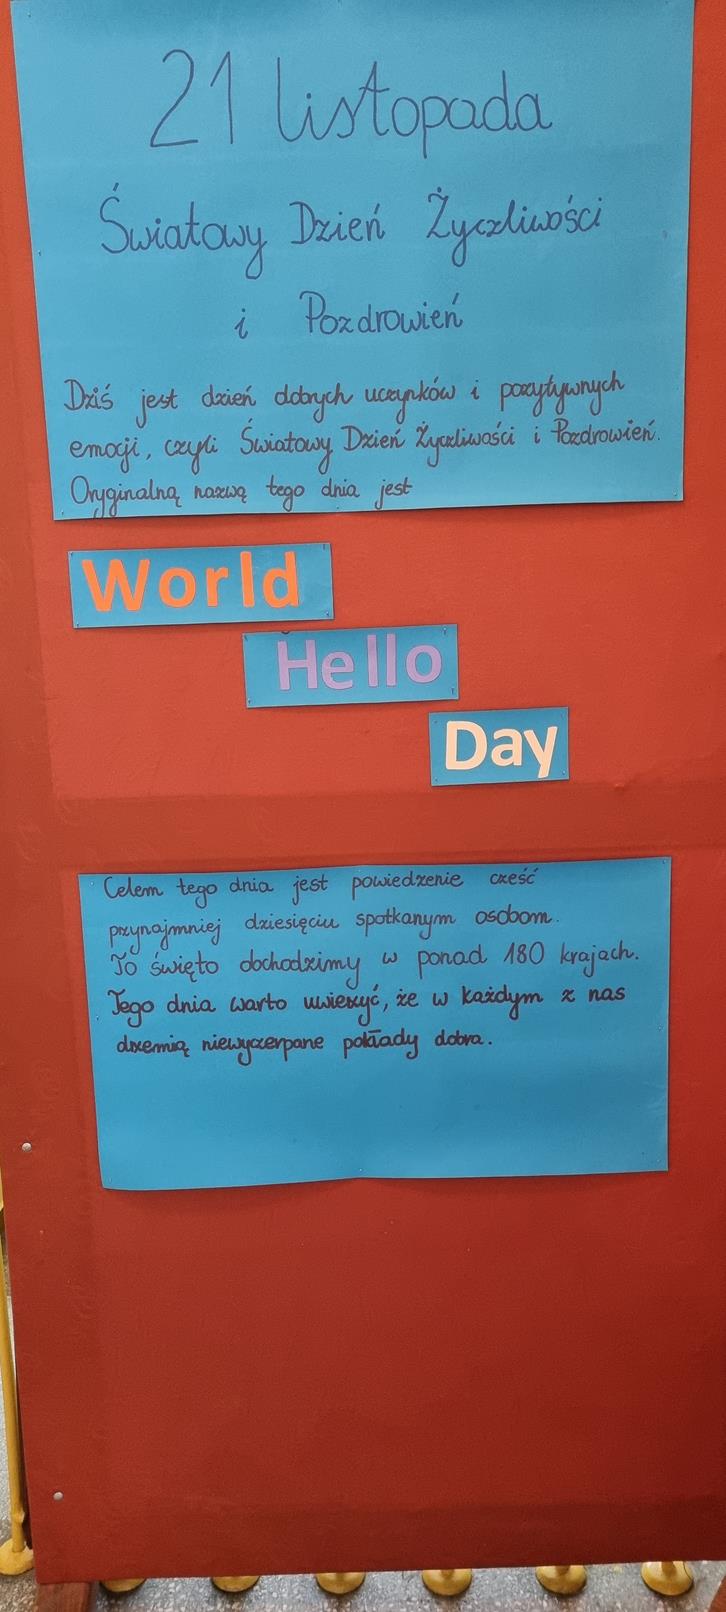 21 listopada
Światowy Dzień Życzliwości
i Pozdrowień
Dziś jest dzień dobrych uczynków i pozytywnych
emocji, czyli Światowy Dzień Życzliwości i Pozdrowień.
Oryginalną nazwą tego dnia jest
World
Hello
Day
Celem tego dnia jest powiedzenie cześć
przynajmniej dziesięciu spotkanym osobom.
To święto obchodzimy w ponad 180 krajach.
Tego dnia warto uwierzyć, że w każdym z nas
drzemią niewyczerpane pokłady dobra.